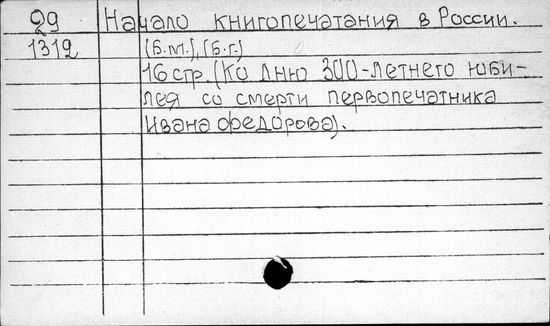 Q9 Начало книгопечатания в России.
1319 (Б.м.), (Б.г.)
16 стр. (Ко дню 300-летнего юби-
лея со смерти первопечатника
Ивана Федорова).